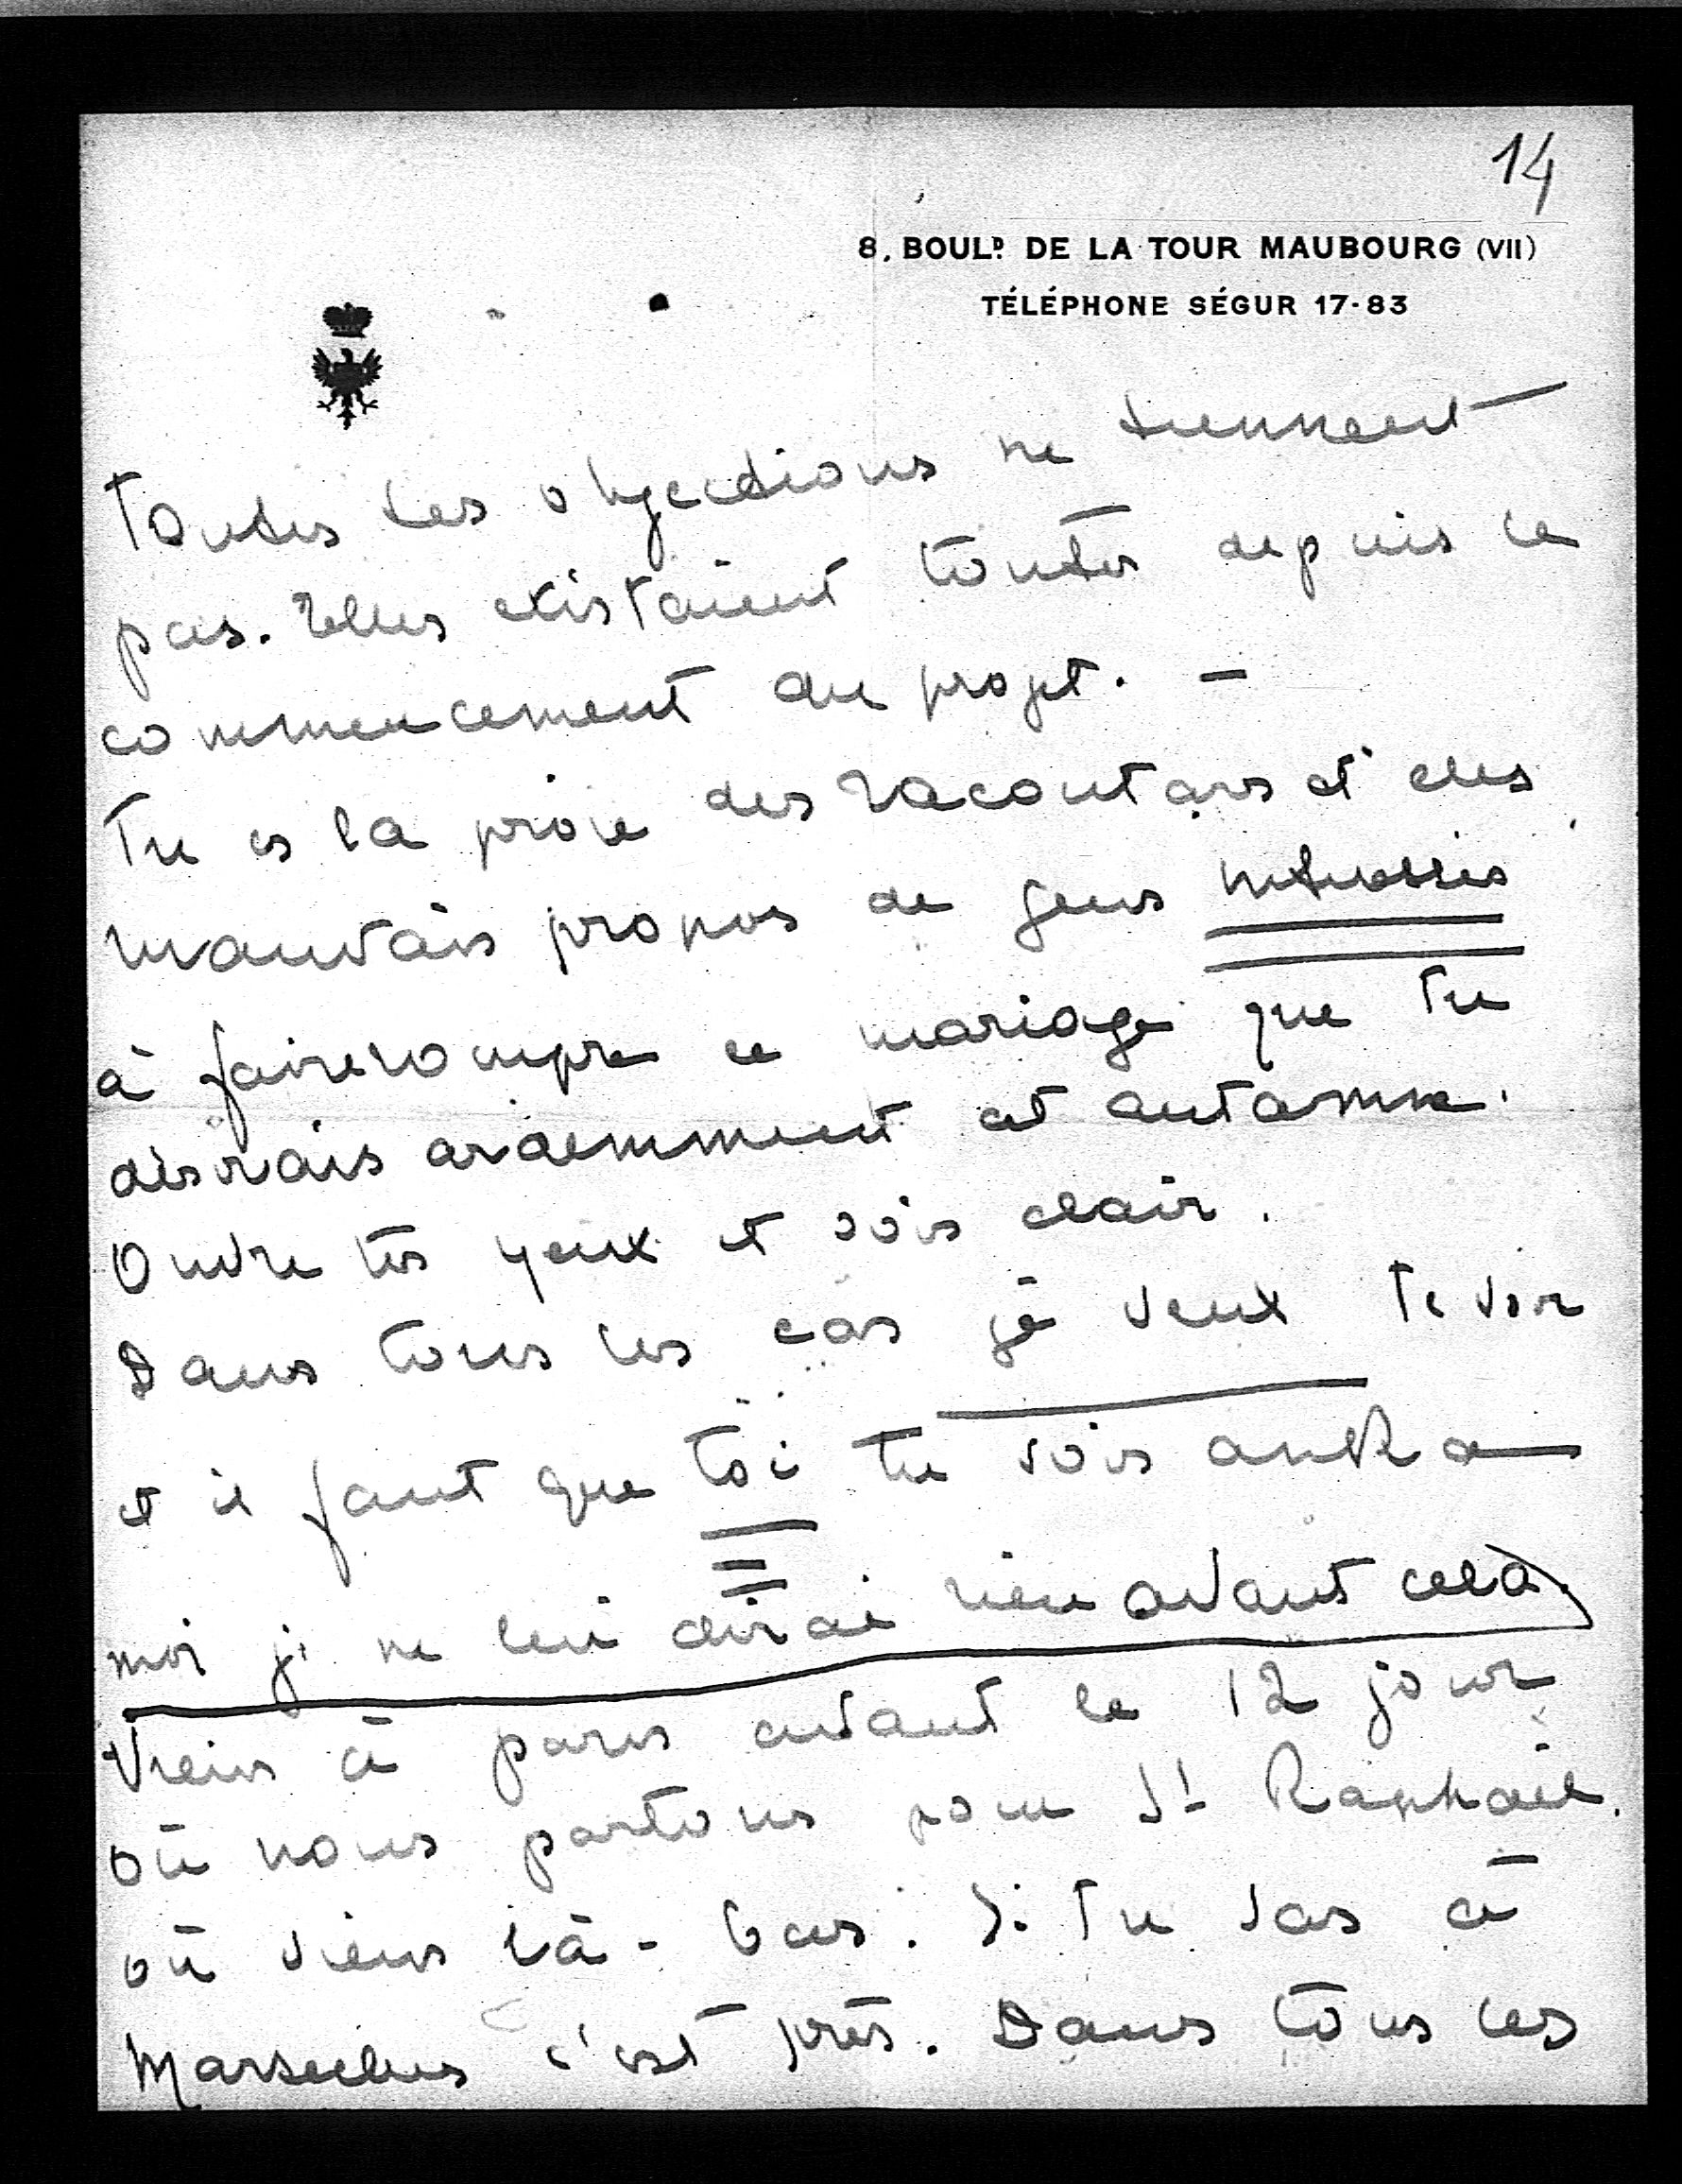 14
8, BOULD. DE LA TOUR MAUBOURG (VII)
TÉLÉPHONE SÉGUR 17-83
Toutes tes objections ne tiennent
pas. Elles existaient toutes depuis le
commencement du projet. —
Tu es la proie des racontars et des
mauvais propos de gens intéressés
à faire rompre ce mariage que tu
désirais ardemment cet automne.
Ouvre tes yeux et vois clair.
Dans tous les cas je veux te voir
et il faut que toi tu vois
moi je ne lui dirai rien avant cela
Viens à paris avant le 12 jour
où nous partons pour St Raphaël
où viens là-bas. Si tu vas à
Marseilles c'est près. Dans tous les